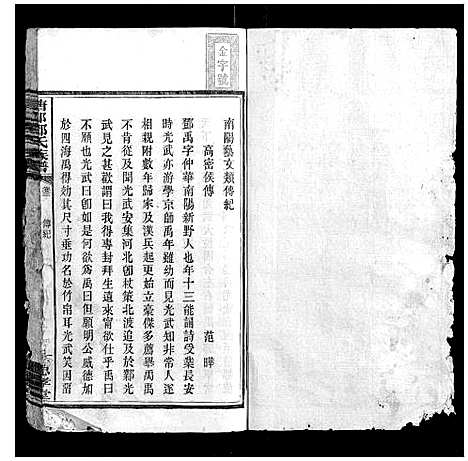 金字號
南陽藝文類傳紀
高密侯傳
范曄
鄧禹字仲華南陽新野人也年十三能誦詩受業長安
時光武亦游學京師禹年雖幼而見光武知非常人遂
相親附數年歸家及漢兵起更始立豪傑多薦舉禹禹
不肯從及聞光武安集河北卽杖策北渡追及於鄴光
武見之甚歡謂曰我得專封拜生遠來寧欲仕乎禹曰
不願也光武曰卽如是何欲爲禹曰但願明公威德加
於四海禹得効其尺寸垂功名於竹帛耳光武笑因留
鄧氏族譜
傳紀